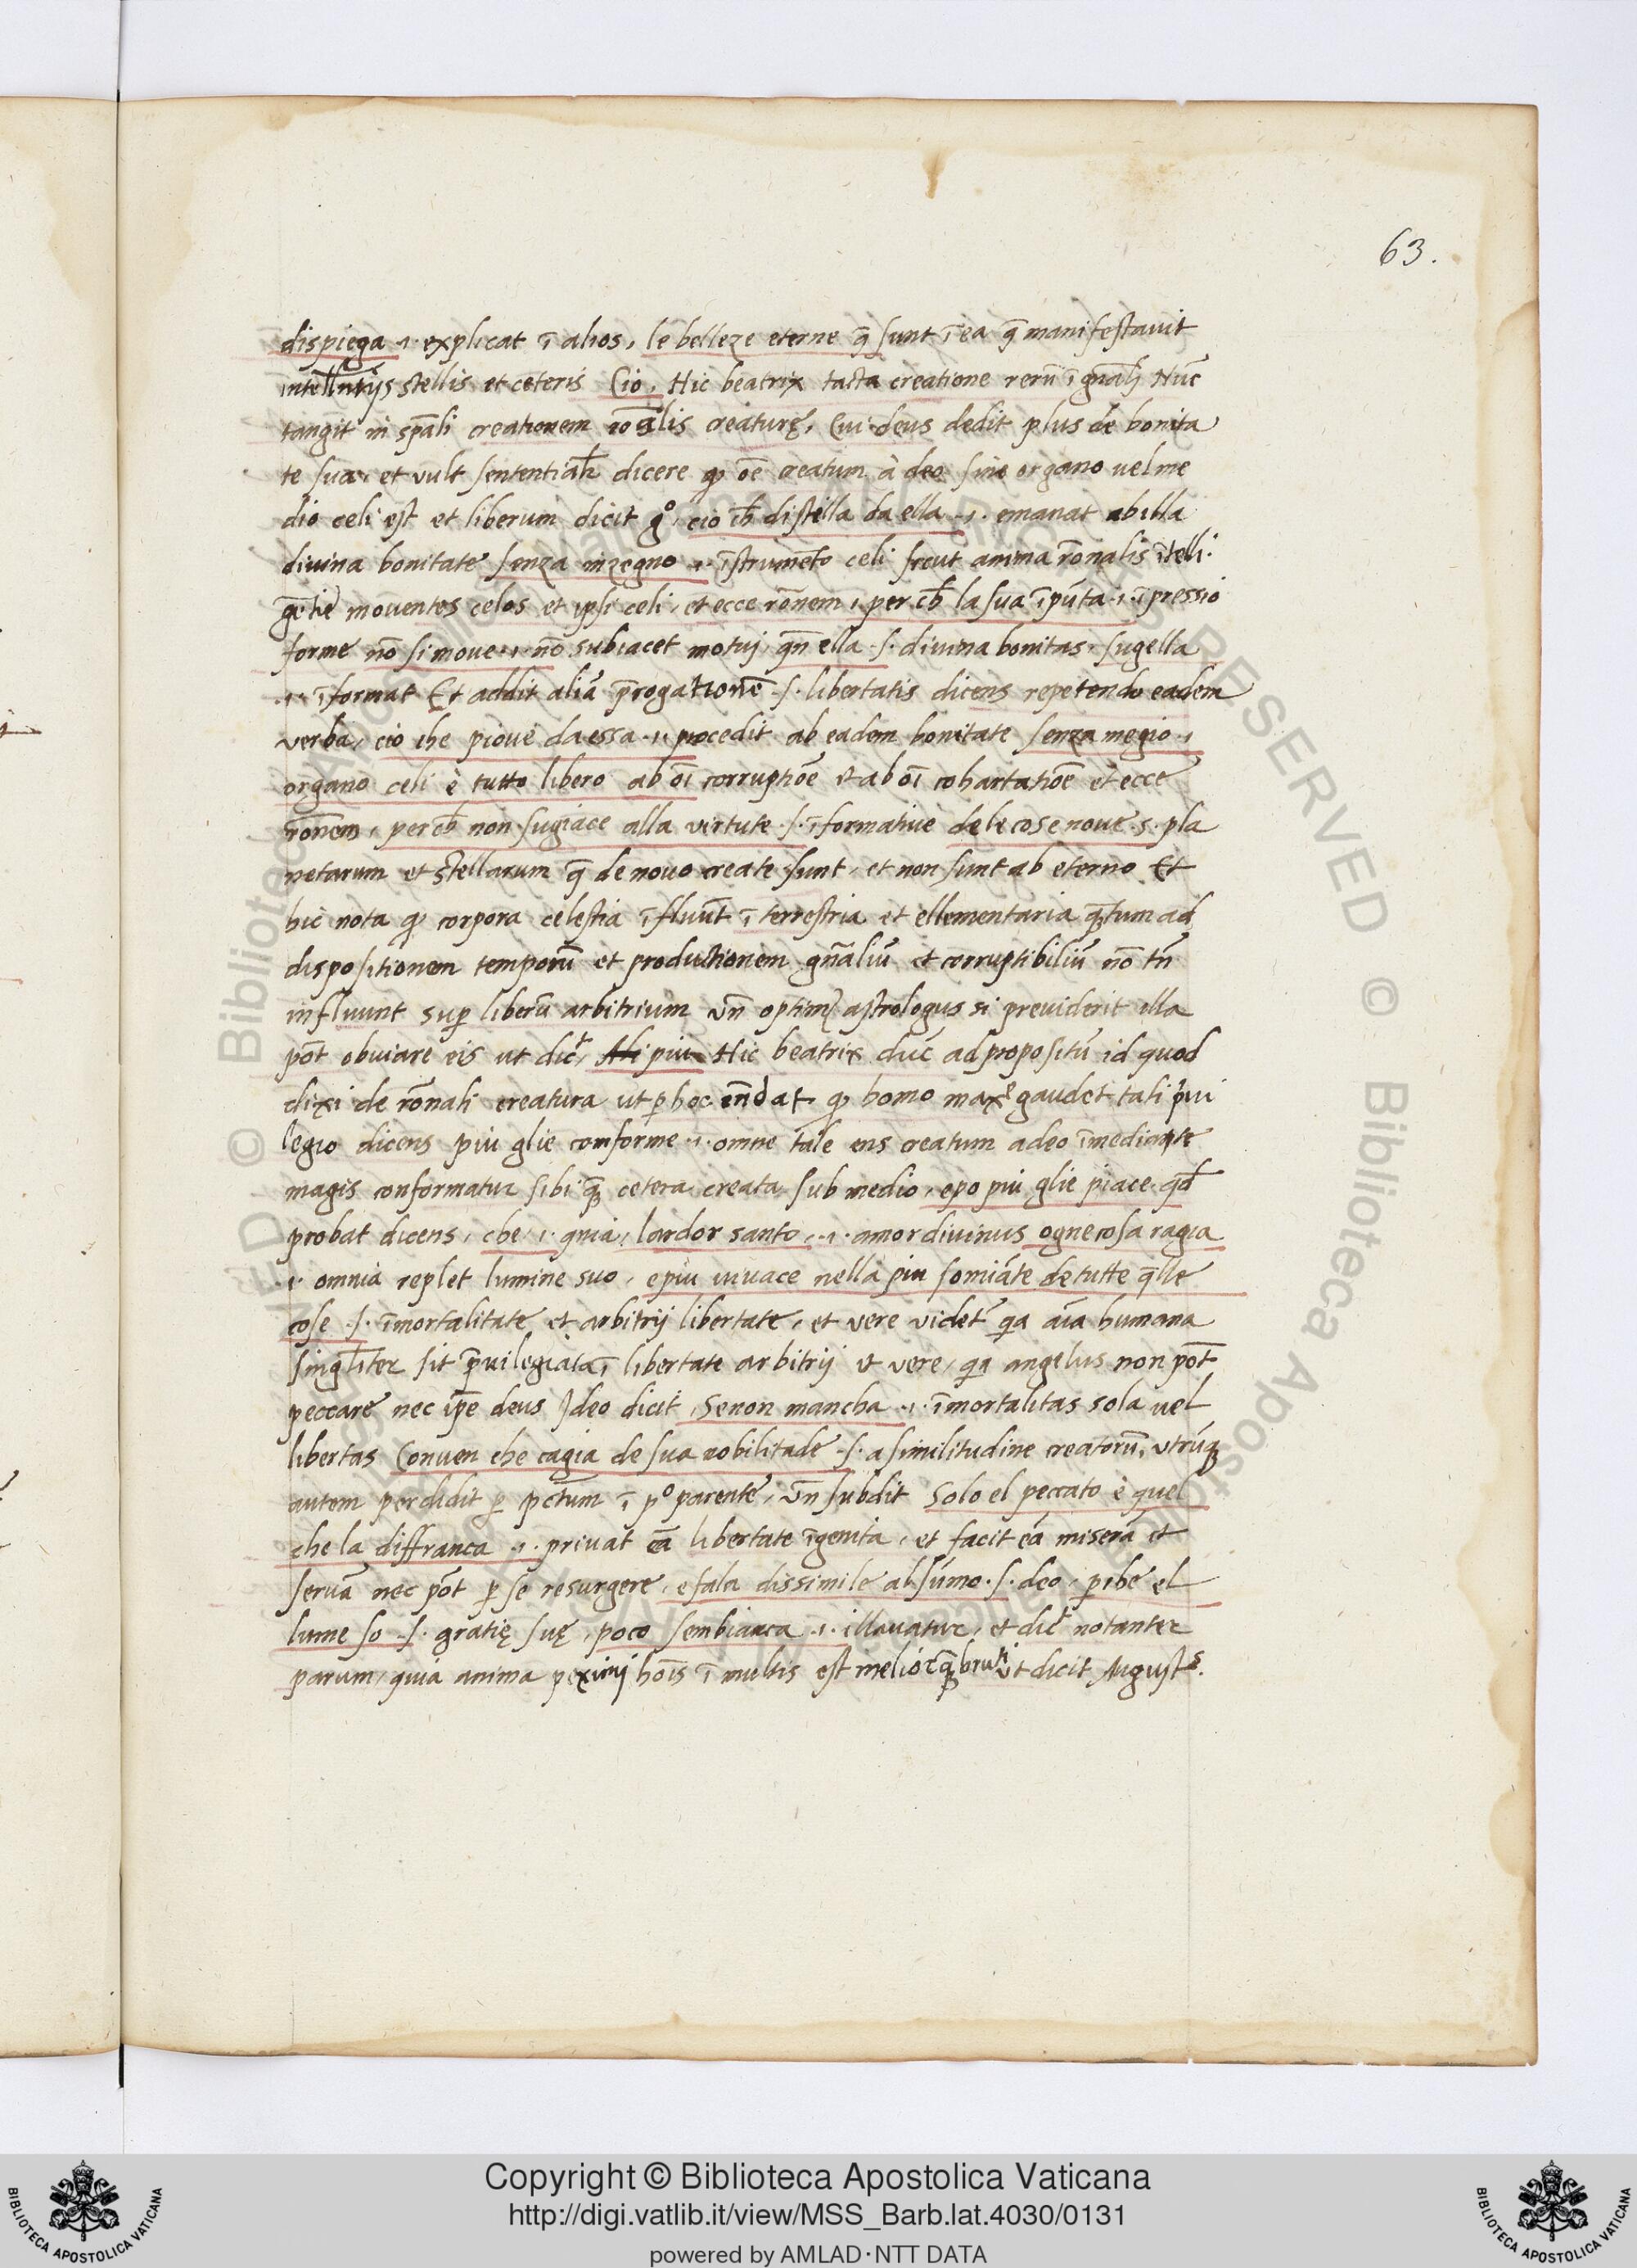 63.
dispiega .i. explicat ī alios, le belleze eterne q̄ sunt ī ea q̄ manifestavit
stellis et ceteris Cio, Hic beatrix tacta creatione rerū ī gn̄ali Nūc
tangit in spāli creationem rōālis creaturę, Cui deus dedit plus de bonita
te sua, et vult sententialr̄ dicere qꝫ oē creatum à deo sine organo vel me
dio celi est et liberum dicit gͦ, cio ch̄ distella da ella .i. emanat ab illa
divina bonitate senza inzegno .i. īstrumēto celi sicut anima rōnalis ītelli
gētie moventes celos et ipsi celi, et ecce rōnem, per ch̄ la sua īpūta .i. īpressio
forme nō si move .i. nō subiacet motui, qn̄ ella .s. divina bonitas, sugella
.i. īformat Et addit aliā p̄rogationē .s. libertatis dicens repetendo eadem
verba, cio che piove da essa .i. procedit ab eadem bonitate senza megio .i.
organo celi è tutto libero ab oī corruptiōe et ab oī cohartatiōe et ecce
rōnem, per ch̄ non sugiace alla virtute .s. īformative de le cose nove .s. pla
netarum et stellarum q̄ de novo create sunt, et non sunt ab eterno Et
hic nota qꝫ corpora celestia īfluūt ī terrestria et ellementaria qꝫtum ad
dispositionem temporū et productionem gn̄aliū et corruptibiliū nō tn̄
influunt sup liberū arbitrium vn̄ optimꝰ astrologus si previderit illa
pōt obviare eis ut dicͬ, piu Hic beatrix dūc ad propositū id quod
dixi de rōnali creatura ut ꝑ hoc cn̄dat qꝫ homo maxͤ gaudet tali p̍vi
legio dicens piu glie conforme .i. omne tale ens creatum a deo īmediate
magis conformatur sibi qꝫ cetera creata sub medio, epo piu glie piace qd̄
probat dicens, che .i. quia, lardor santo .i. amor divinus ogne cosa ragia
.i. omnia replet lumine suo, e piu vivace nella piu somiāte de tutte q̄lle
cose .s. īmortalitate et arbitrij libertate, et vere videt̄ qa aīa humana
singlīter sit p̄vilegiata ī libertate arbitrij et vere, qa angelus non pōt
peccare nec ip̄e deus Ideo dicit, Se non mancha .i. īmortalitas sola vel
libertas Conven che cagia de sua nobilitade .s. a similitudine creatorū, utrūqꝫ
autem perdidit ꝑ pctūm ī pͦ parente, vn̄ subdit Solo el peccato è quel
che la diffranca .i. privat eā libertate īgenita, et facit eā miserā et
servā nec pōt ꝑ se resurgere, e fala dissimile al sūmo .s. deo, p che el
lume so .s. gratię suę, poco sembianca .i. et dicͬ notanter
parum, quia anima peximj hōis ī multis est melior qꝫ bruti ut dicit Augustꝰ.
Copyright © Biblioteca Apostolica Vaticana
http://digi.vatlib.it/view/MSS_Barb.lat.4030/0131
powered by AMLAD·NTT DATA